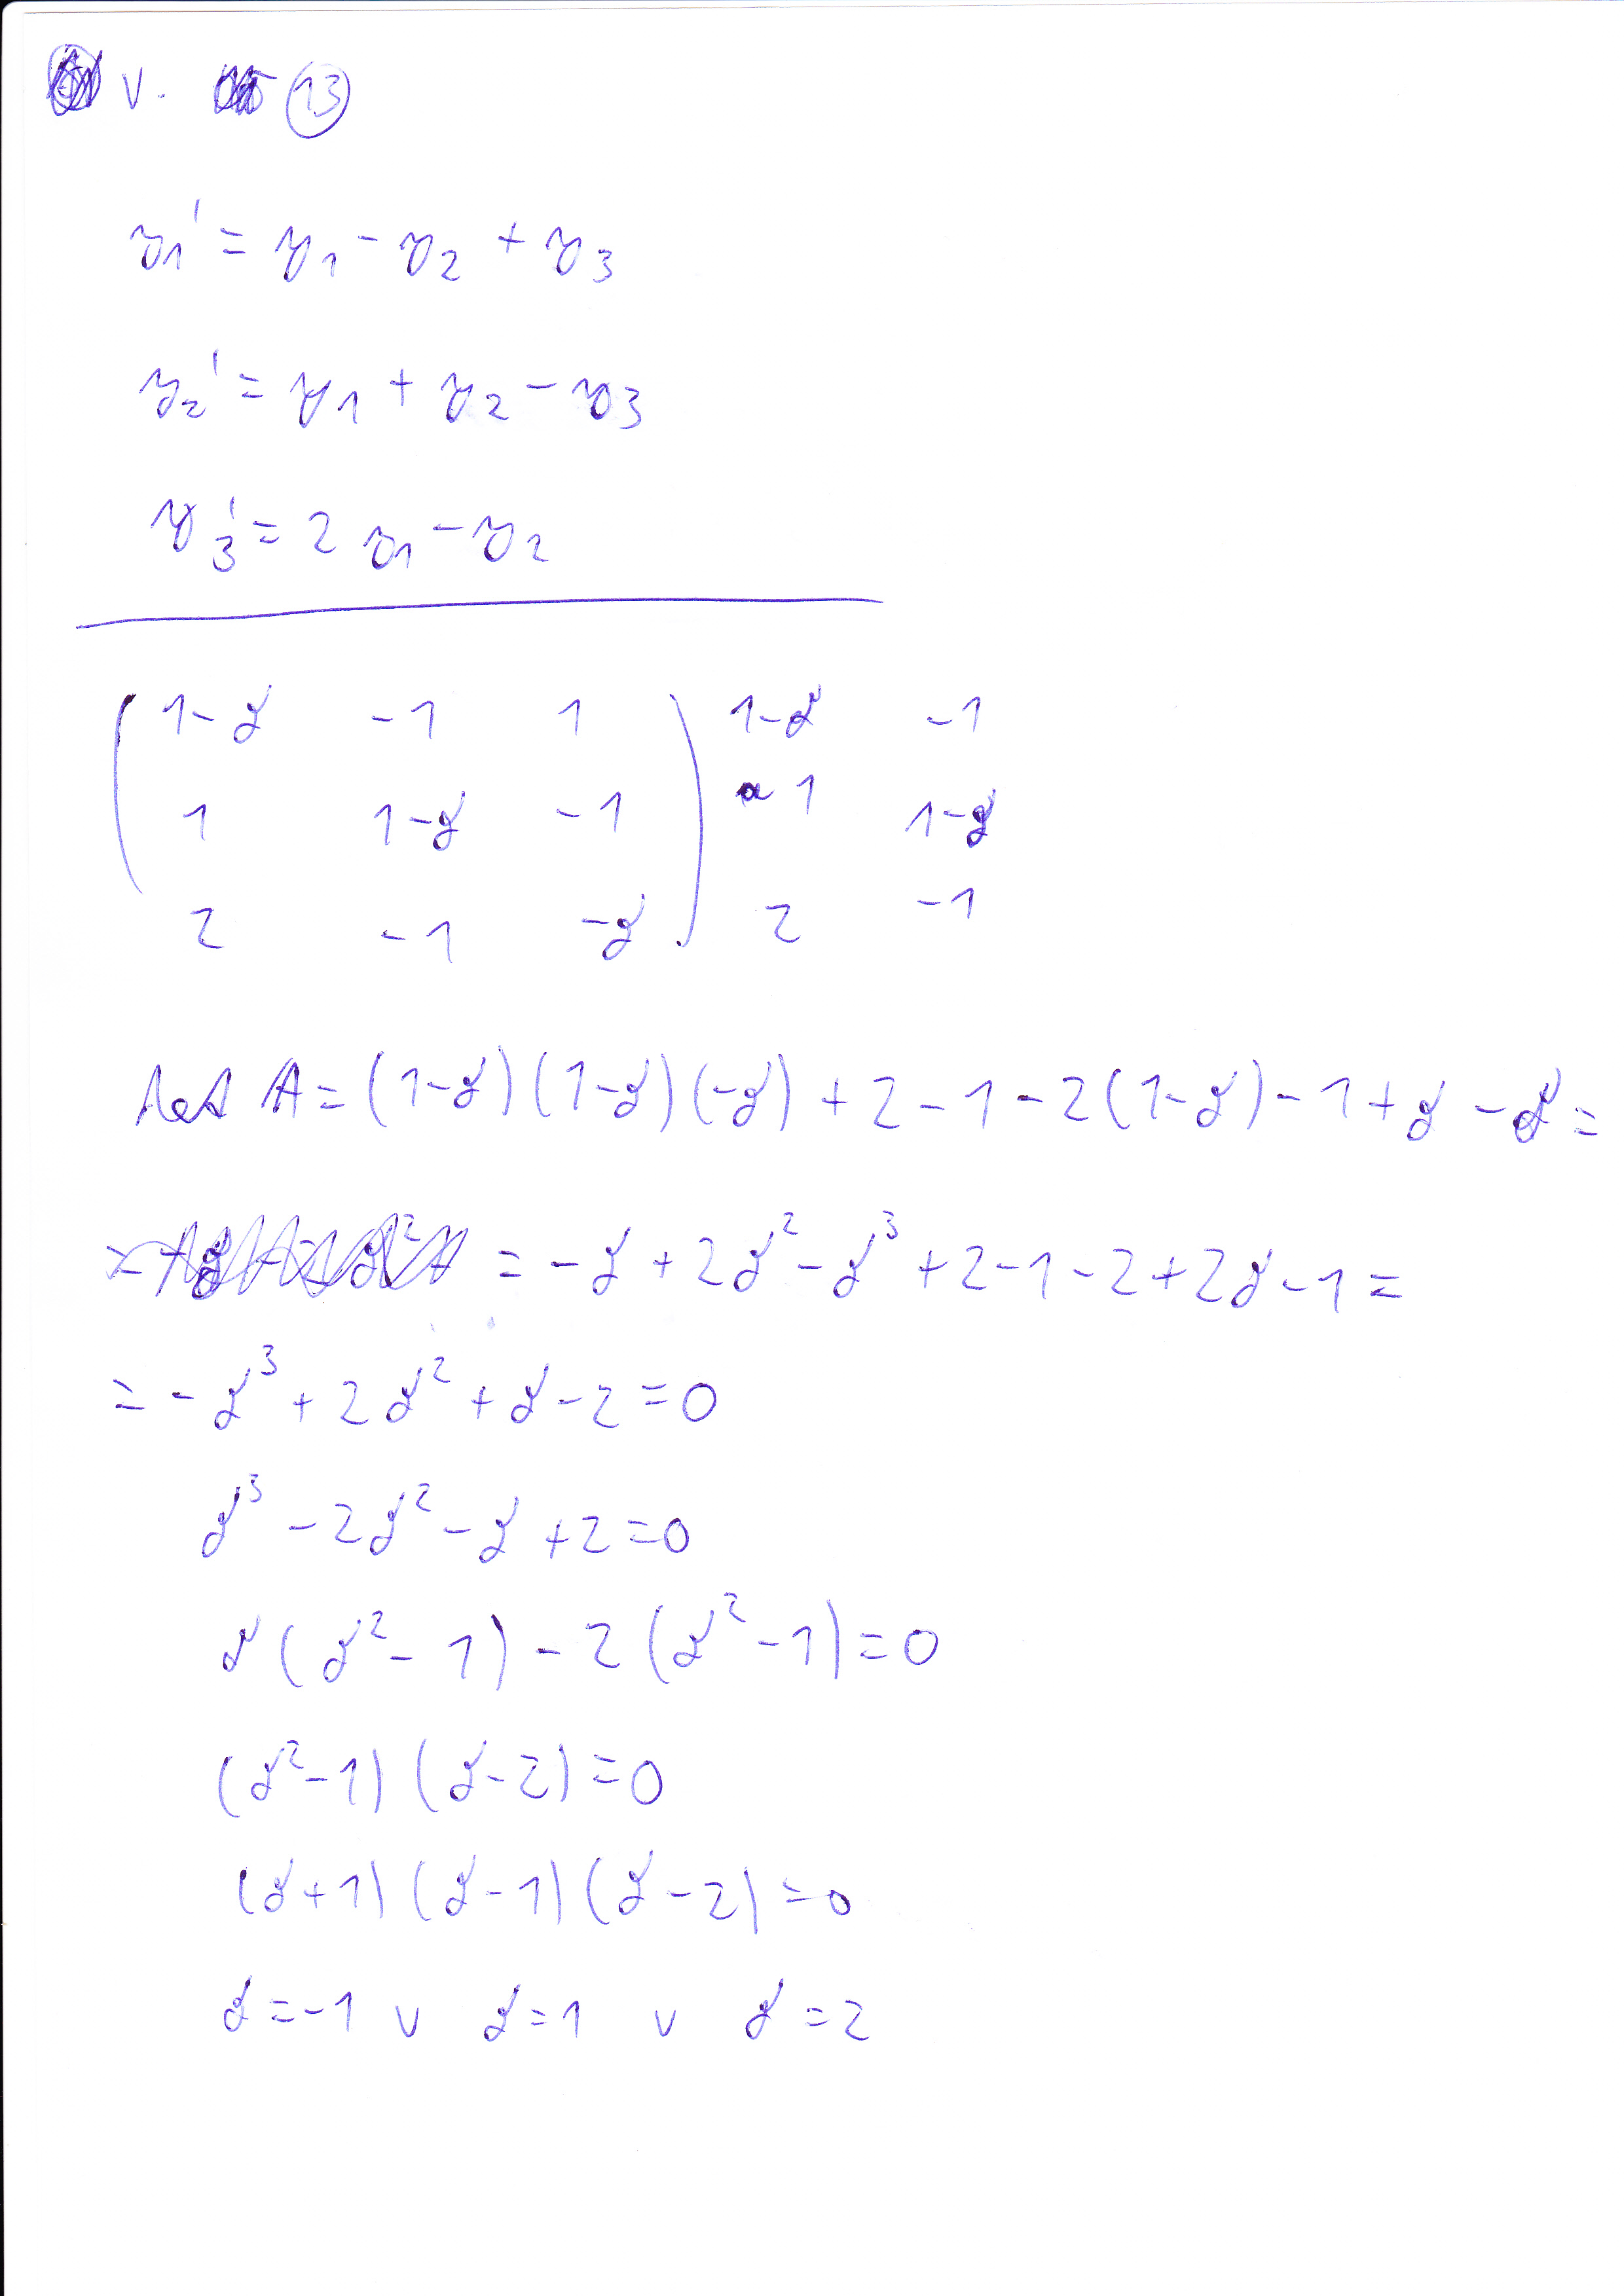 V. 13
y₁' = y₁ - y₂ + y₃
y₂' = y₁ + y₂ - y₃
y₃' = 2 y₁ - y₂
( 1-λ -1 1 ) 1-λ -1
( 1 1-λ -1 ) 1 1-λ
( 2 -1 -λ ) 2 -1
det A = (1-λ)(1-λ)(-λ) + 2 - 1 - 2(1-λ) - 1 + λ - λ =
= -λ + 2λ² - λ³ + 2 - 1 - 2 + 2λ - 1 =
= -λ³ + 2λ² + λ - 2 = 0
λ³ - 2λ² - λ + 2 = 0
λ(λ² - 1) - 2(λ² - 1) = 0
(λ² - 1)(λ - 2) = 0
(λ + 1)(λ - 1)(λ - 2) = 0
λ = -1 v λ = 1 v λ = 2